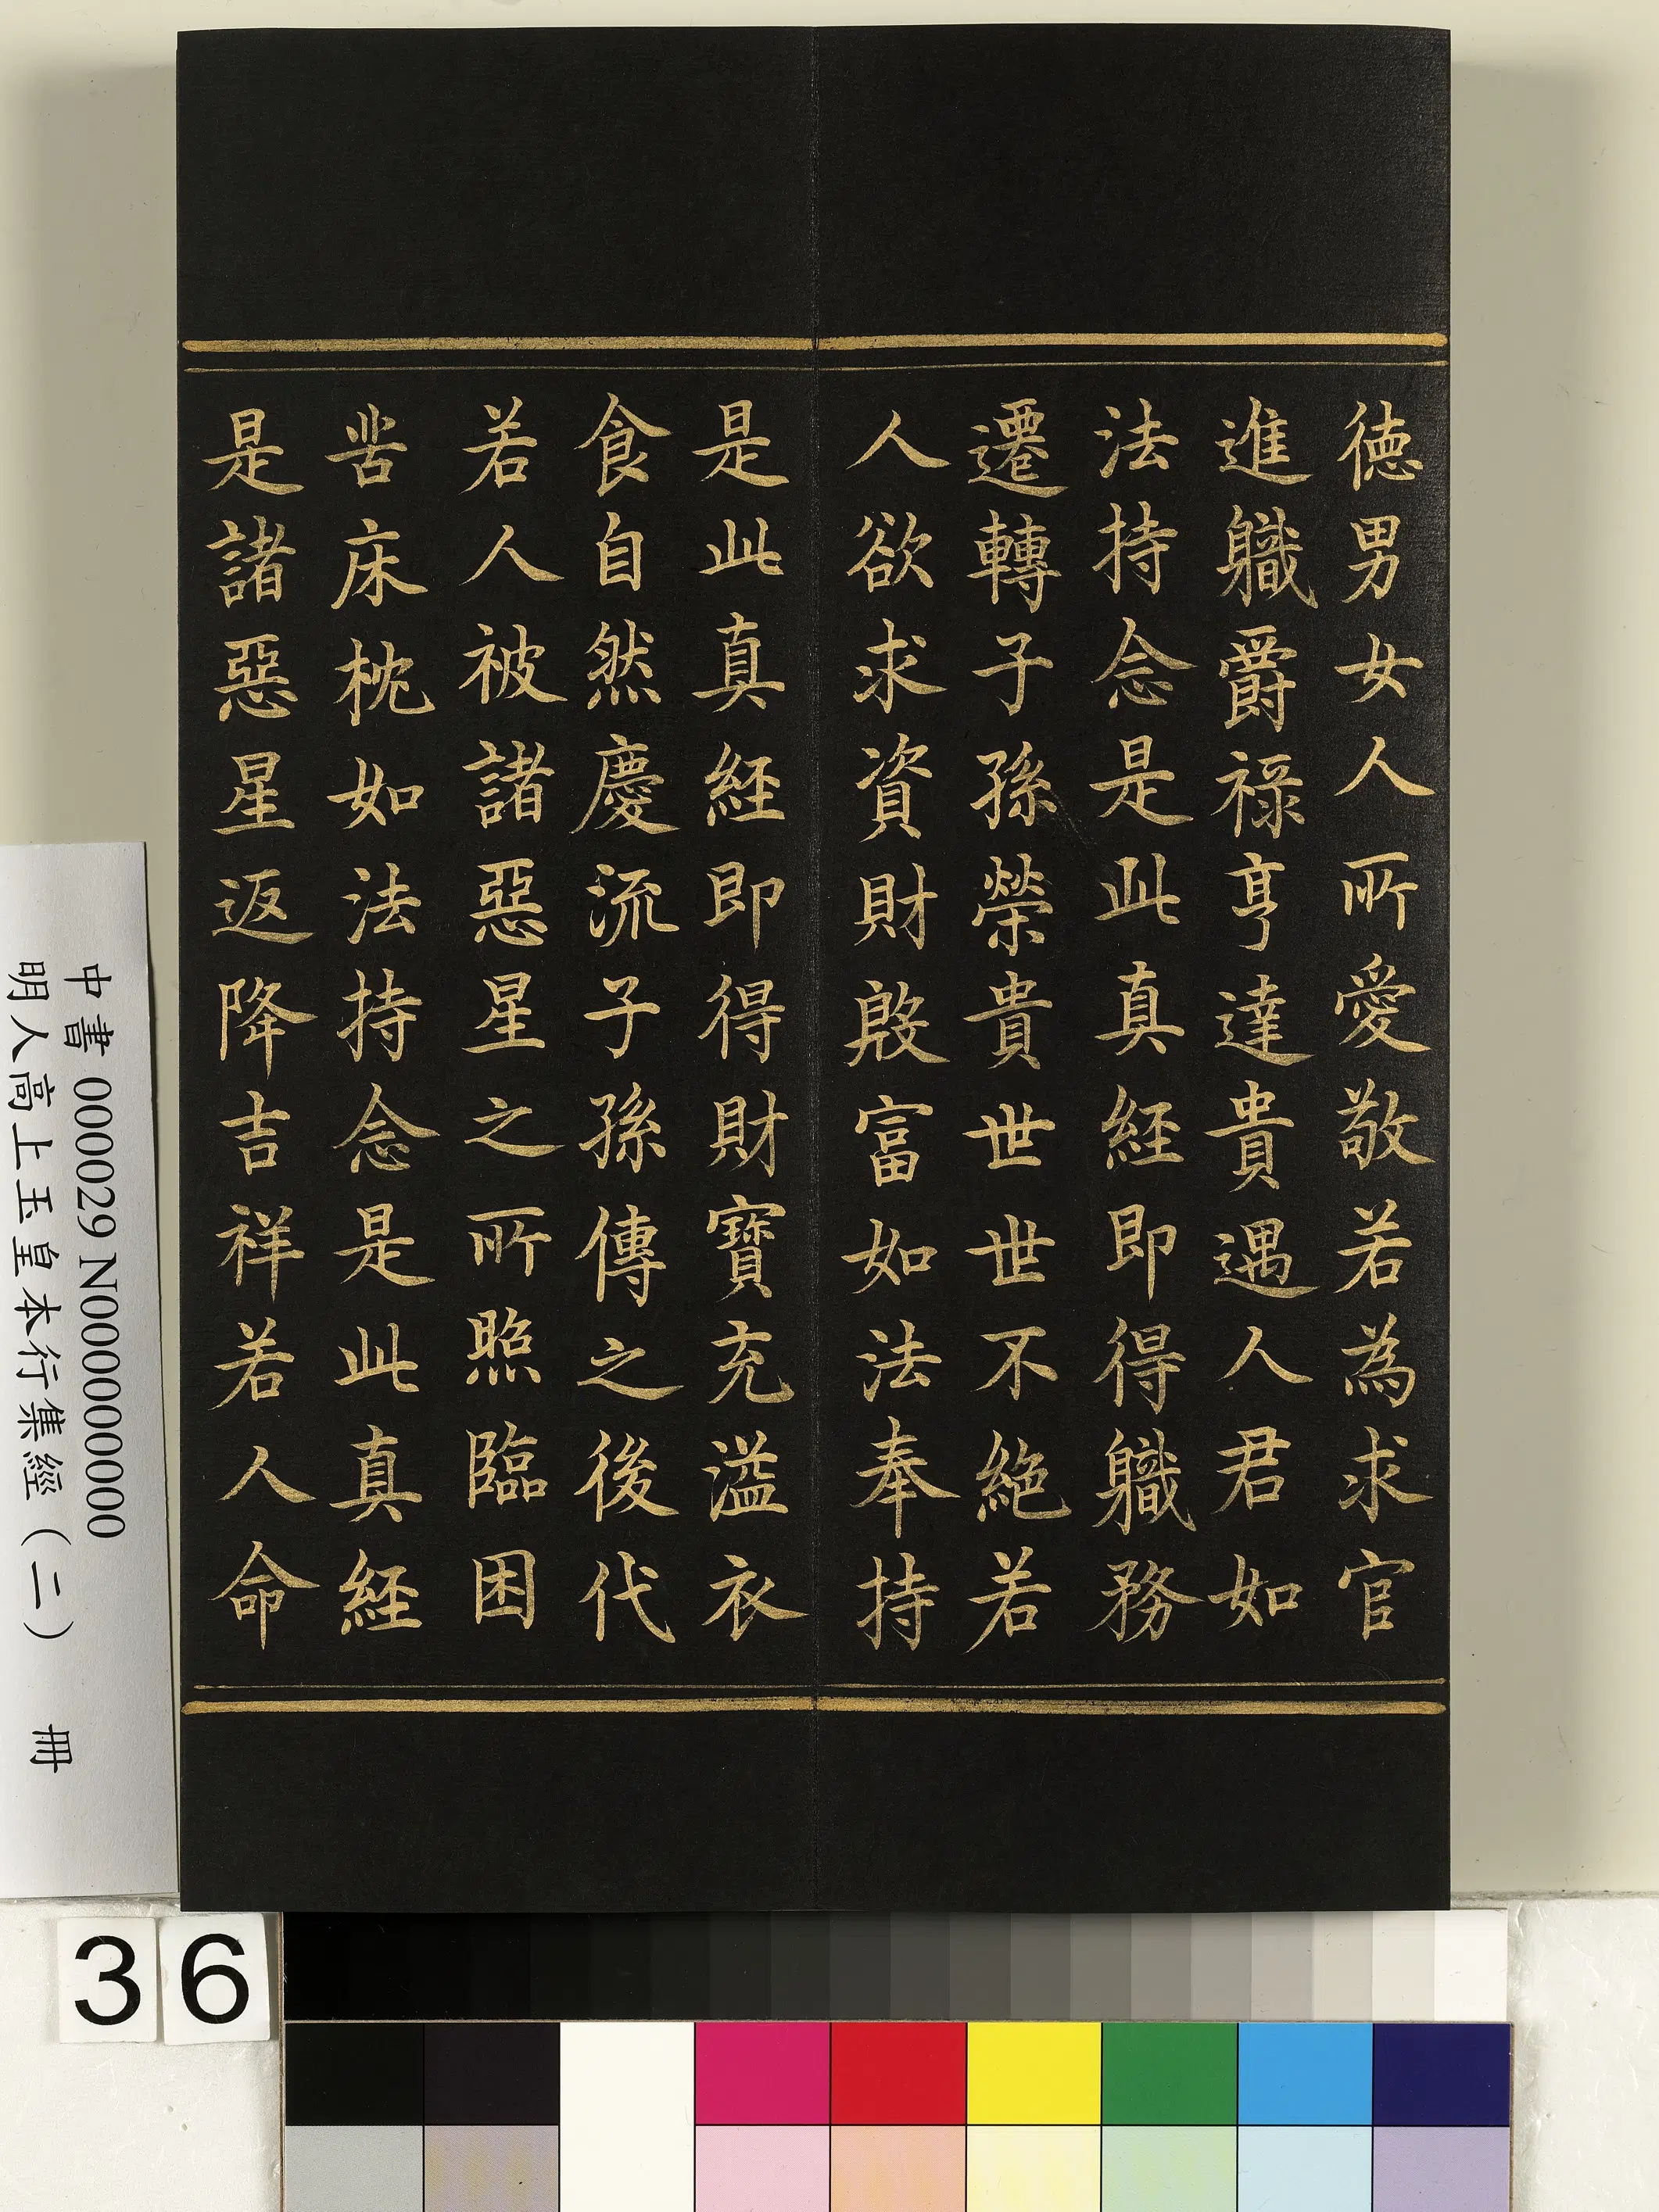 徳男女人所愛敬若為求官
進軄爵禄亨達貴遇人君如
法持念是此真経即得軄務
遷轉子孫榮貴世世不絶若
人欲求資財殷富如法奉持
是此真経即得財寳充溢衣
食自然慶流子孫傳之後代
若人被諸惡星之所照臨困
苦床枕如法持念是此真経
是諸惡星返降吉祥若人命
中書 000029 N000000000
明人高上玉皇本行集經（二） 冊
36